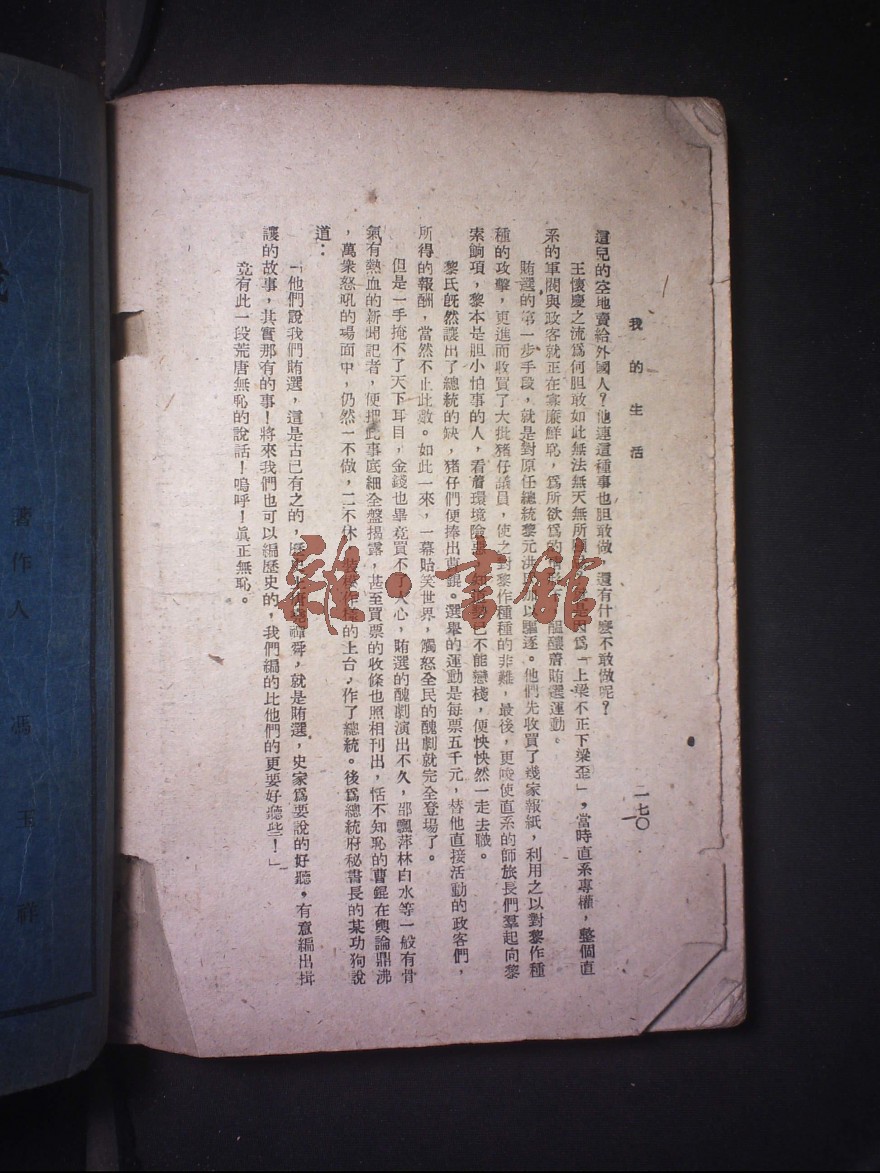 我的生活
二七〇
這兒的空地賣給外國人？他連這種事也胆敢做，還有什麼不敢做呢？
王懷慶之流爲何胆敢如此無法無天無所 因爲「上梁不正下梁歪」，當時直系專權，整個直
系的軍閥與政客就正在寡廉鮮恥，爲所欲爲的 醞釀着賄選運動。
賄選的第一步手段，就是對原任總統黎元洪 以驅逐。他們先收買了幾家報紙，利用之以對黎作種
種的攻擊，更進而收買了大批猪仔議員，使之對黎作種種的非難，最後，更唆使直系的師旅長們羣起向黎
索餉項，黎本是胆小怕事的人，看着環境險 已不能戀棧，便怏怏然一走去職。
黎氏旣然讓出了總統的缺，猪仔們便捧出曹錕。選舉的運動是每票五千元，替他直接活動的政客們，
所得的報酬，當然不止此數。如此一來，一幕貽笑世界，觸怒全民的醜劇就完全登場了。
但是一手掩不了天下耳目，金錢也畢竟買不了人心，賄選的醜劇演出不久，邵飄萍林白水等一般有骨
氣有熱血的新聞記者，便把此事底細全盤揭露，甚至買票的收條也照相刊出，恬不知恥的曹錕在輿論鼎沸
，萬衆怒吼的場面中，仍然一不做，二不休， 的上台，作了總統。後爲總統府秘書長的某功狗說
道：
「他們說我們賄選，這是古已有之的，歷史 禪舜，就是賄選，史家爲要說的好聽，有意編出揖
讓的故事，其實那有的事！將來我們也可以編歷史的，我們編的比他們的更要好聽些！」
竟有此一段荒唐無恥的說話！嗚呼！眞正無恥。
著作人 馮玉祥
雜·書館